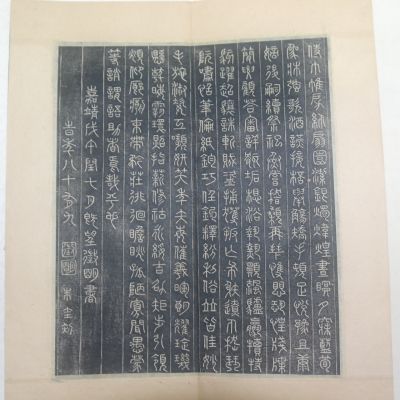 侍巾帷房紈扇圓潔銀燭煒煌晝眠夕寐藍筍
象床弦歌酒讌接杯舉觴矯手頓足悅豫且康
嫡後嗣續祭祀烝嘗稽顙再拜悚懼恐惶牋牒
簡要顧答審詳骸垢想浴執熱願涼驢騾犢特
駭躍超驤誅斬賊盜捕獲叛亡布射遼丸嵇琴
阮嘯恬筆倫紙鈞巧任釣釋紛利俗並皆佳妙
毛施淑姿工顰妍笑年矢每催羲暉朗曜璇璣
懸斡晦魄環照指薪修祜永綏吉劭矩步引領
俯仰廊廟束帶矜莊徘徊瞻眺孤陋寡聞愚蒙
等誚謂語助者焉哉乎也
嘉靖戊午閏七月既望徵明書
時年八十有九
朱圭刻